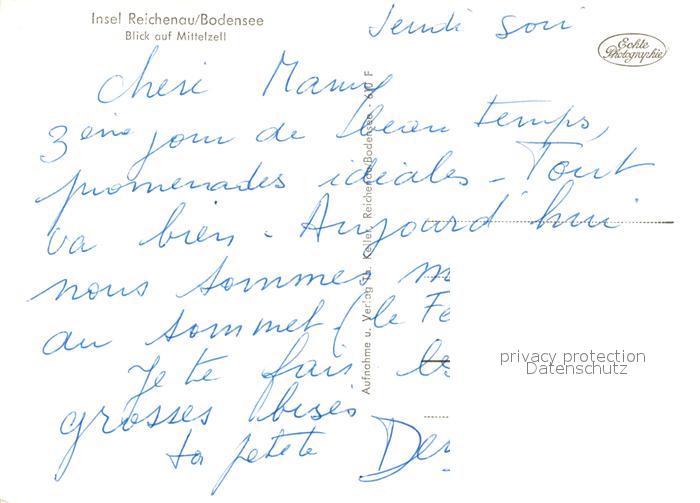 Insel Reichenau/Bodensee
Blick auf Mittelzell
Echte Photographie
Jeudi soir
Chère Mamy
3ème jour de beau temps,
promenades idéales - Tout
va bien - Aujourd'hui
nous sommes
au sommet (le
Je te fais
grosses bises
ta petite
Aufnahme u. Verlag Th. Keller, Reichenau/Bodensee
privacy protection
Datenschutz